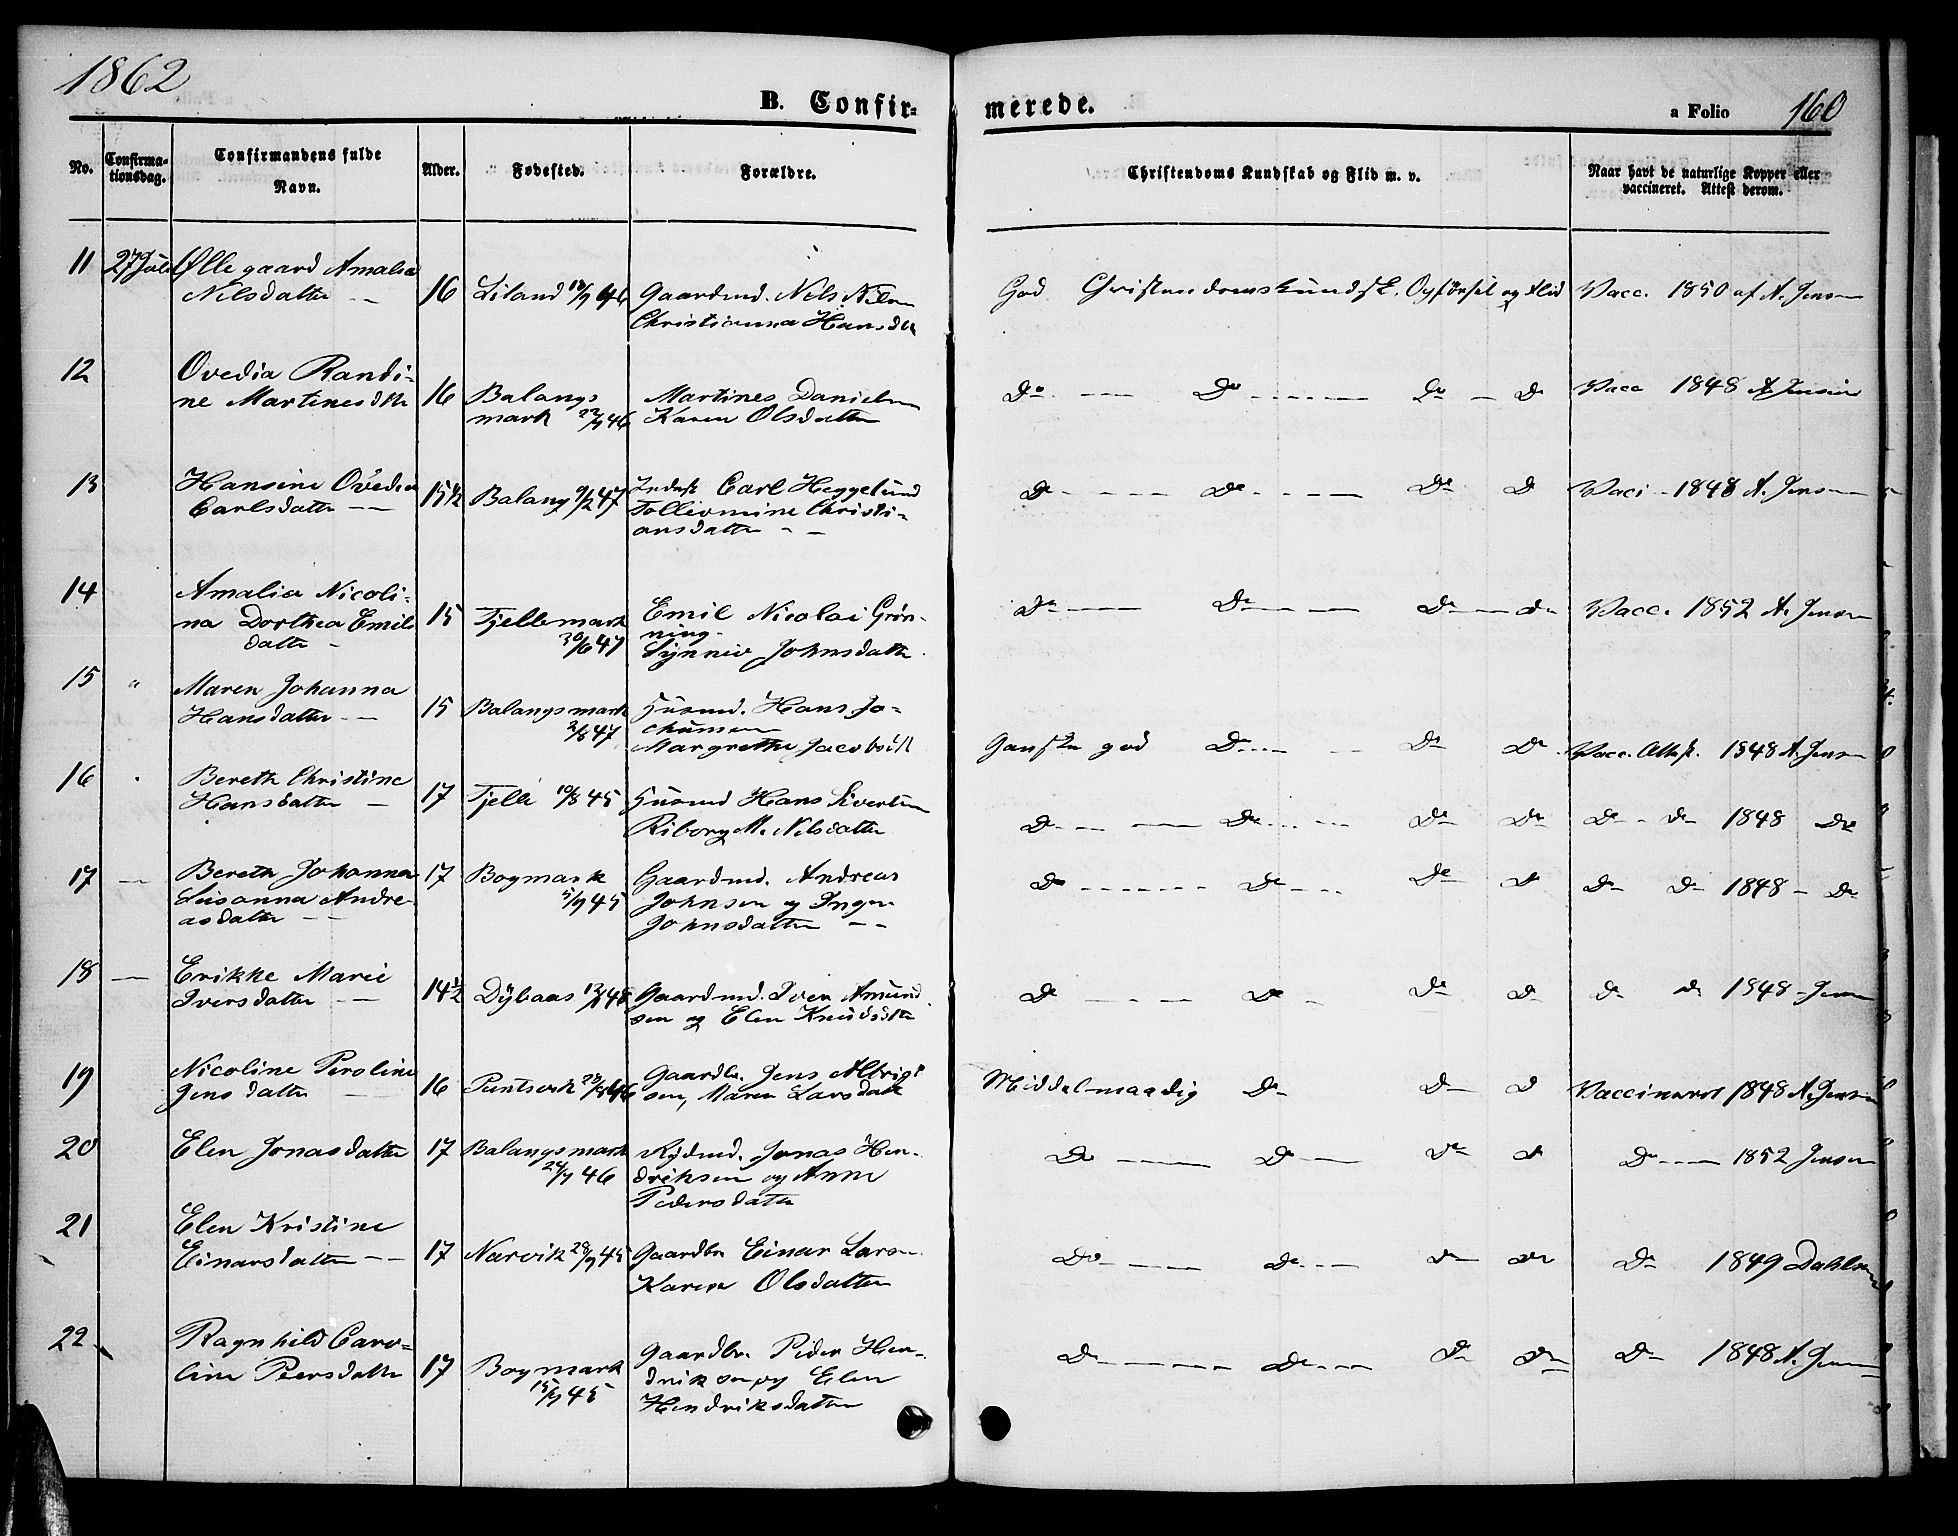 1862
B. Confir-
merede.
a Folio 160
No.
Confirma-
tionsdag.
Confirmandens fulde
Navn.
Alder.
Fødested.
Forældre.
Christendoms Kundskab og Flid m. v.
Naar havt de naturlige Kopper eller
vaccineret. Attest derom.
11 27 Juli Øllegaard Amalia
Nilsdatter — 16 Liland 46 Gaardmd. Nils Nilsen
Christianna Hansdtr
God Christendomskundsk. Opførsel og Flid Vacc. 1850 af A. Jensen
12 Ovedia Randi-
ne Martinesdtr 16 Balangs Martines Danielsen
mark 46 Karen Olsdatter
Do Do Do D Vacc 1848 A Jensen
13 Hansine Ovedia
Carlsdatter — 15½ Balang 9/2 47 Inderst Carl Heggelund
Tolleomine Christi-
ansdatter —
Do Do Do D Vacc 1848 A. Jensen
14 Amalia Nicoli-
na Dorthea Emils 15 Fjellemark Emil Nicolai Grøn-
datter 30/6 47 ning.
Synnev Johnsdatter
Do Do Do Do Vacc. 1852 A. Jensen
15 " Maren Johanna
Hansdatter — 15 Balangsmark Husmd. Hans Jo-
2/8 47 chumsen
Margrethe Jacobsdtr
Ganske god Do Do Do Vacc. Attest. 1848 A. Jensen
16 Bereth Christine
Hansdatter — 17 Fjelle 10/8 45 Husmd Hans Sivertsen
Riborg M. Nilsdatter
Do Do Do Do Do Do 1848 Do
17 — Bereth Johanna 17 Bogmark Gaardmd. Andreas
Susanna Andre- 5/9 45 Johnsen og Inger
asdatter — Johnsdatter —
Do Do Do D Do Do 1848 - Do
18 — Erikke Marie
Iversdatter — 14½ Dybaas 48 Gaardmd. Iver Amund
sen og Elen Knudsdtr
Do Do Do Do Do Do 1848 - Jensen
19 Nicoline Peroline
Jensdatter — 16 46 Gaardbr. Jens Albrigt
sen, Maren Larsdatter
Middelmaadig Do Do D Vaccineret 1848 A. Jensen
20 Elen Jonasdatter 17 Balangsmark Rydmd. Jonas Hen-
46 driksen og Anne
Pedersdatter
Do Do Do D Do 1852 Jensen
21 Elen Kristine
Einarsdatter — 17 Narvik 28/9 45 Gaardbr Einar Larsen
Karen Olsdatter
Do Do Do Do Do 1849 Dahlsen
22 Ragnhild Caro-
line Peersdatter 17 Bogmark Gaardbr. Peder Hen-
15/9 45 driksen og Elen
Hendriksdatter
Do Do Do Do Do 1848 A. Jensen